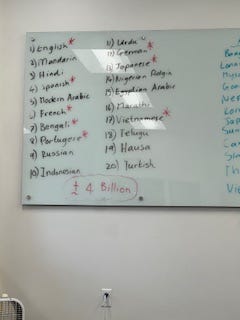 1) English *
2) Mandarin
3) Hindi
4) Spanish *
5) Modern Arabic
6) French *
7) Bengali *
8) Portugere *
9) Russian
10) Indonesian
11) Urdu
12) German *
13) Japanese *
14) Nigerian Pidgin
15) Egyptian Arabic
16) Marathi
17) Vietnamese *
18) Telugu
19) Hausa
20) Turkish
± 4 Billion